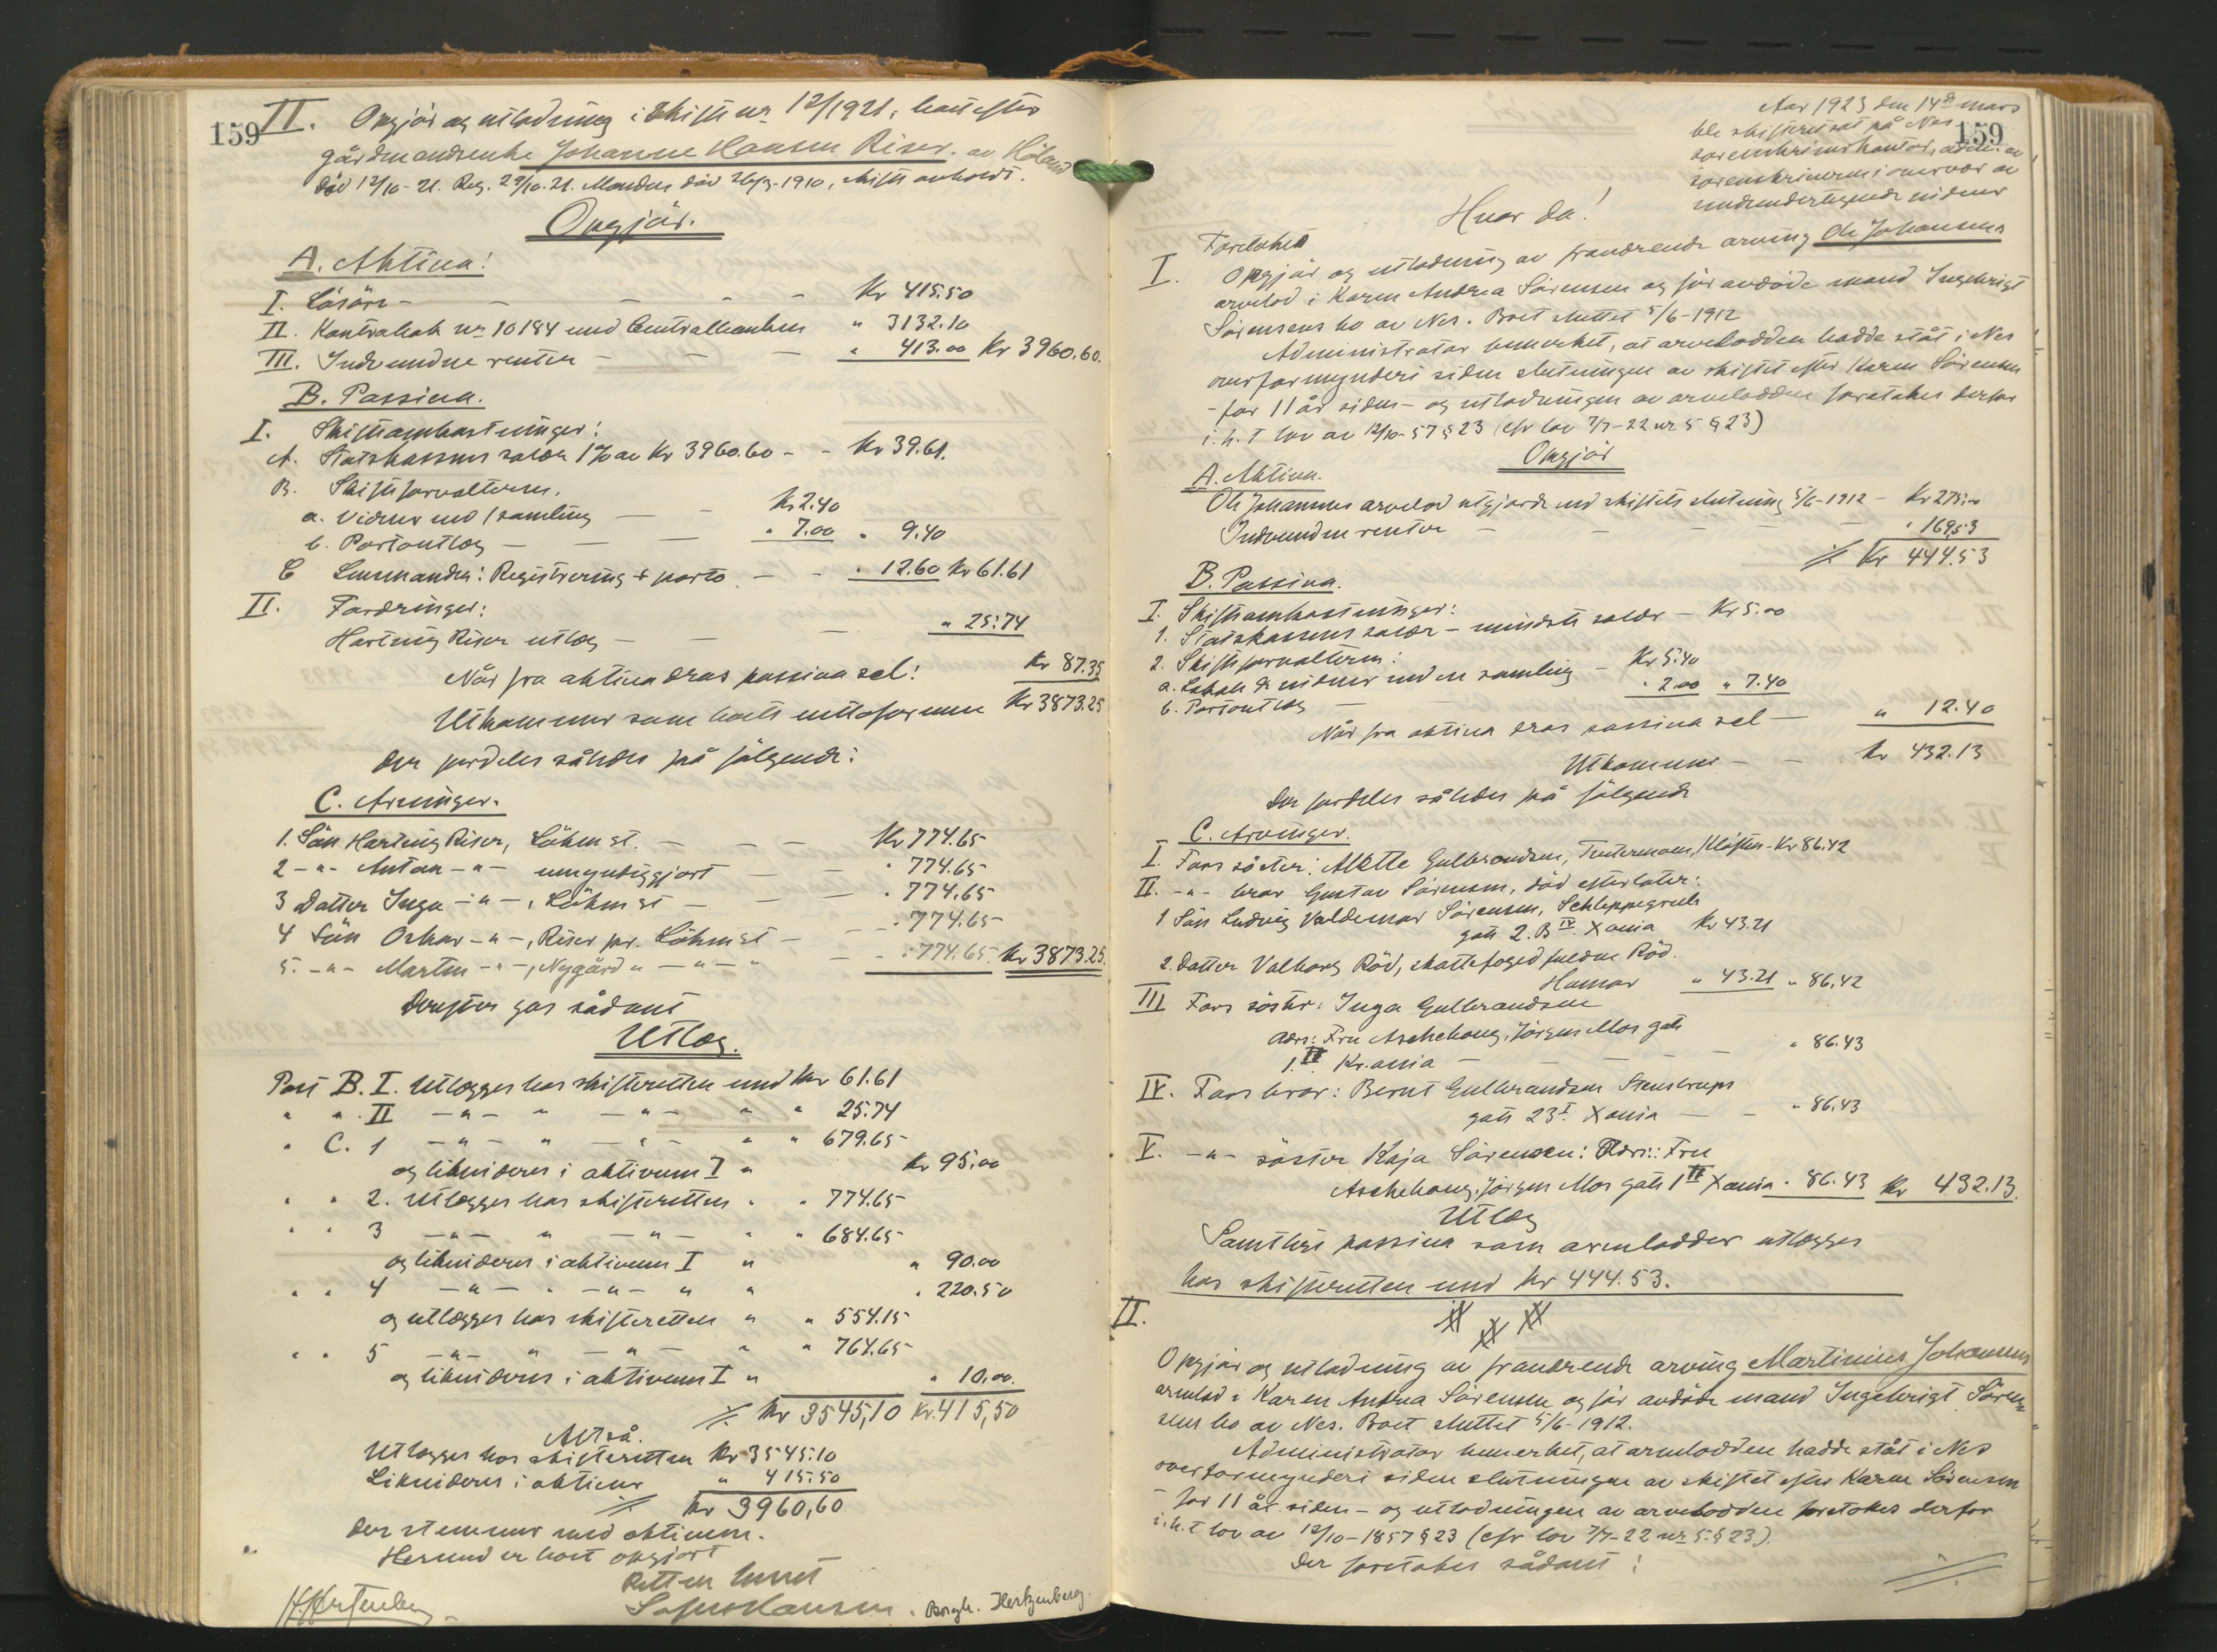 159
II. Opgjør og utlodning i skifte nr 12/1921, boet efter
gårdmandsenke Johanne Hansen Riser av Høland
død 12/10-21. Reg. 29/10.21. Manden død 26/3-1910, skifte avholdt.
Opgjør.
A. Aktiva:
I. Løsøre - - - - - Kr 415.50
II. Kontrabok nr 10184 med Centralbanken " 3132.10
III. Indvundne renter - - - " 413.00 Kr 3960.60.
B. Passiva.
I. Skifteomkostninger:
A. Statskassens salær 1% av Kr 3960.60 - - Kr 39.61.
B. Skifteforvalteren.
a. Vidner ved 1 samling - - Kr 2.40
b. Portoutlæg - - - " 7.00 " 9.40
C Lensmanden: Registrering + porto - - " 12.60 Kr 61.61
II. Fordringer:
Hartvig Riser utlæg - - - " 25.74
Kr 87.35
Når fra aktiva dras passiva sel:
Utkommer som boets nettoformue Kr 3873.25
der fordeles således på følgende:
C. Arvinger.
1. Søn Hartvig Riser, Løken st. - - - Kr 774.65
2 -"- Anton -"- umyndiggjort - - " 774.65
3 Datter Inga -"-, Løken st - - - " 774.65
4 Søn Oskar -"-, Riser pr. Løken st - - - " 774.65
5. -"- Martin -"-, Nygård " -"- " - - " 774.65 Kr 3873.25.
Derefter gas sådant
Utlæg.
Post B. I. Utlægges hos skifteretten med Kr 61.61
" ". II -"- " -"- " " 25.74
" C. 1 -"- " -"- " " 679.65
og likvideres i aktivum I " Kr 95.00
" " 2. Utlægges hos skifteretten " " 774.65
" " 3 -"- " -"- " " 684.65
og likvideres i aktivum I " " 90.00
" " 4 -"- " -"- " " " 220.50
og utlægges hos skifteretten " " 554.15
" " 5 -"- " -"- " " 764.65
og likvideres i aktivum I " " 10.00.
Kr 3545,10 Kr. 415,50
Altså.
Utlægges hos skifteretten Kr 3545.10
Likvideres i aktiva " 415.50
Kr 3960,60
Der stemmer med aktivum.
Hermed er boet opgjort
Retten hævet
Borgh. Hertzenberg.
Aar 1923 den 14de mars
ble skifteret sat på Nes
159
sorenskriverkontor, adm. av
sorenskriveren i overvær av
undertegnede vidner
Hvor da!
Foretokes
I. Opgjør og utlodning av fraværende arving Ole Johansens
arvelod i Karen Andrea Sørensen og før avdøde mand Ingebrigt
Sørensens bo av Nes. Boet sluttet 5/6-1912
Administrator bemerket, at arvelodden hadde ståt i Nes
overformynderi siden slutningen av skiftet efter Karen Sørensen
- for 11 år siden - og utlodningen av arvelodden foretokes derfor
i. h. t lov av 12/10-57 § 23 (cfr lov 7/7-22 nr 5 § 23)
Opgjør
A. Aktiva.
Ole Johansens arvelod utgjorde ved skiftets slutning 5/6-1912 - Kr 275.00
Indvundne renter - - - - " 169,53
Kr 444.53
B. Passiva.
I. Skifteomkostninger:
1. Statskassens salær - mindste salær - Kr 5.00
2. Skifteforvalteren:
a. Lokale & vidner ved en samling - Kr 5.40
b. Portoutlæg - " 2.00 " 7.40
Når fra aktiva dras passiva sel - " 12.40
Utkommer - - Kr 432.13
der fordeles således på følgende
C. Arvinger.
I. Fars søster: Mette Gulbrandsen, Tutermoen, Kløften - Kr 86.42
II. -"- bror Gustav Sørensen, død efterlater:
1 Søn Ludvig Valdemar Sørensen, Schleppegrels
gate 2. B IV. Xania Kr 43.21
2. Datter Valborg Rød, skattefoged fuldm. Rød.
Hamar " 43.21 " 86,42
III Fars søster: Inga Gulbrandsen
adrs: Fru Aschehoug, Jørgen Moes gate
1. II Kr.ania - - - - - " 86.43
IV. Fars bror: Bernt Gulbrandsen Stenstrups
gate 23 I Xania - - " 86.43
V. -"- søster Kaja Sørensen: Adrs.: Fru
Aschehoug, Jørgen Moes gate 1 II Xania " 86.43 Kr 432.13.
Utlæg
Samtlige passiva som arvelodder utlægges
hos skifteretten med Kr 444.53.
II.
Opgjør og utlodning av fraværende arving Martinius Johansens
arvelod i Karen Andrea Sørensen og før avdøde mand Ingebrigt Søren-
sens bo av Nes. Boet sluttet 5/6-1912.
Administrator bemerket, at arvelodden hadde ståt i Nes
overformynderi siden slutningen av skiftet efter Karen Sørensen
- for 11 år siden - og utlodningen av arvelodden foretokes derfor
i. h. t lov av 12/10-1857 § 23 (cfr lov 7/7-22 nr 5 § 23).
Der foretokes sådant: